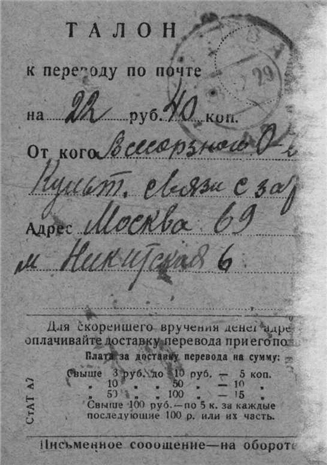 ТАЛОН
к переводу по почте
на 22 руб. 40 коп.
От кого Всесоюзного О-
Культ. связи с заг
Адрес Москва 69
м Никитская 6
Для скорейшего вручения денег адре
оплачивайте доставку перевода при его по
Плата за доставку перевода на сумму:
Свыше 3 руб. до 10 руб. — 5 коп.
" 10 " 50 " — 10 "
" 50 " 100 " — 15 "
Свыше 100 руб.—по 5 к. за каждые
последующие 100 р. или их часть.
Письменное сообщение—на оборот
29